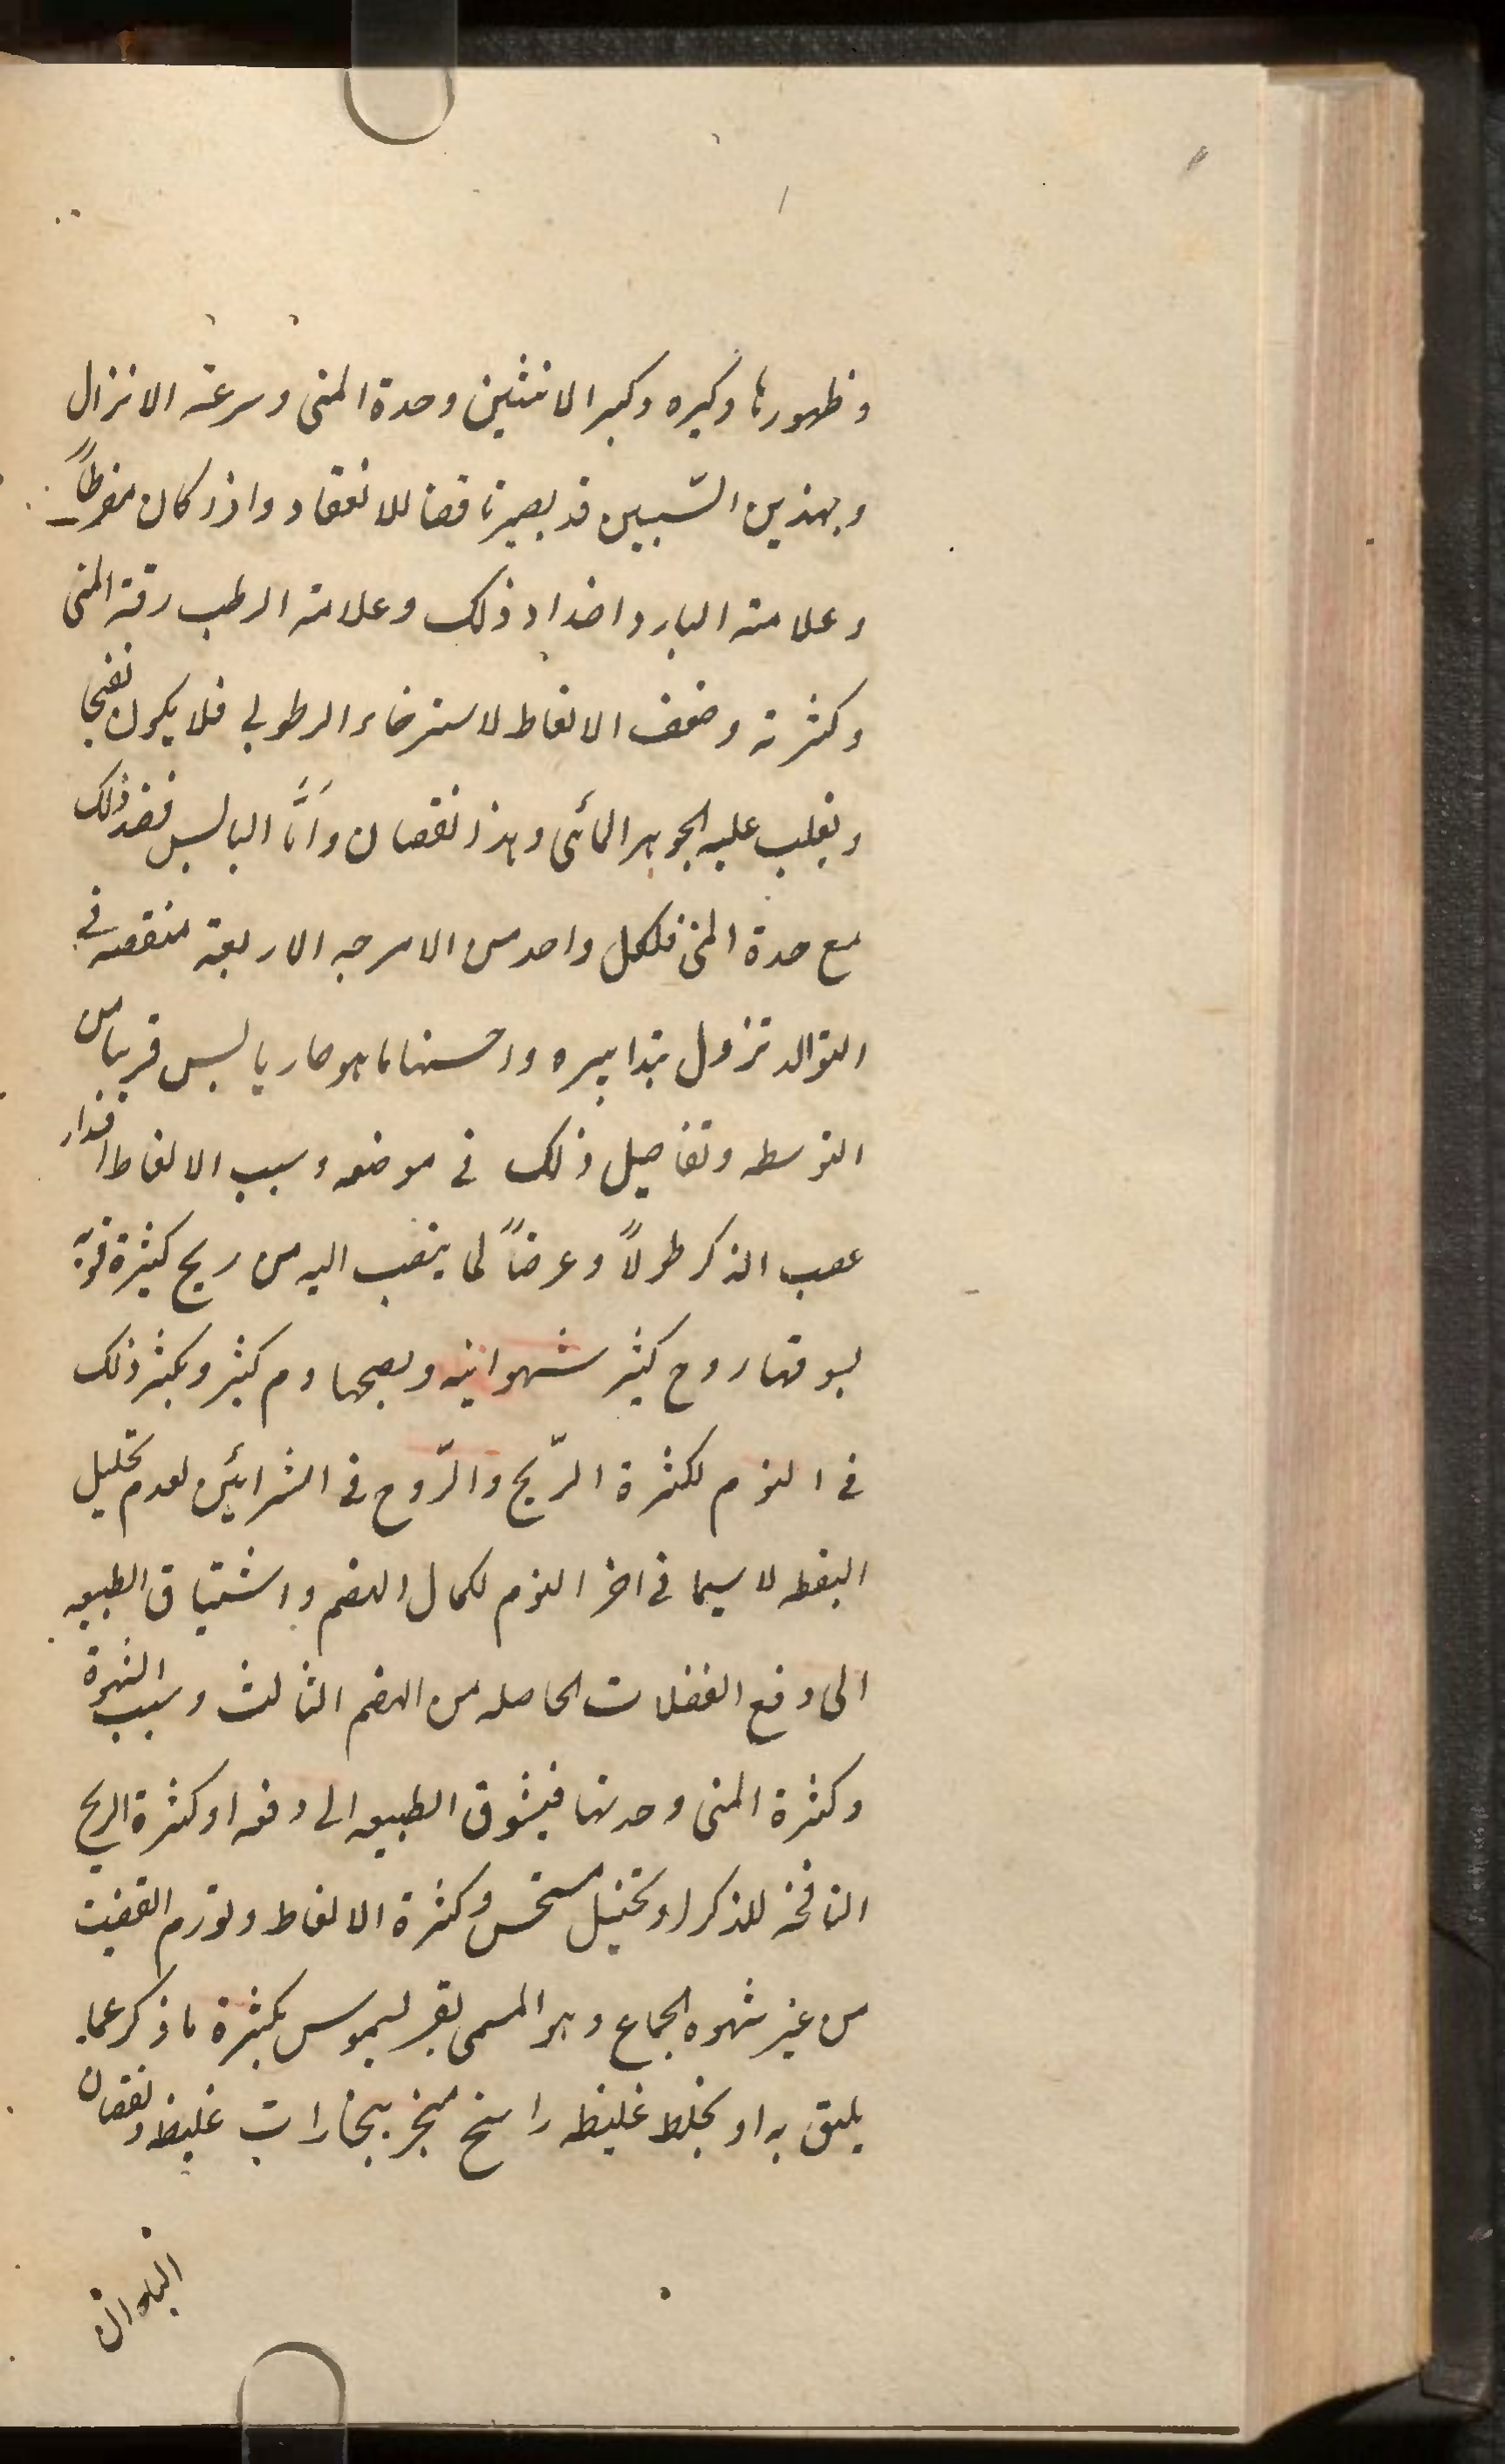 وظهورها وكبره وكبر الانثيين وحدة المنى وسرعة الانزال
وبهذين السّببين قد يصير ناقصا للانعقاد واذا كان مفرطاً
وعلامة البارد اضداد ذلك وعلامة الرطب رقة المنى
وكثرته وضعف الانعاظ لاسترخاء الرطوبى فلا يكون نضجا
ويغلب عليه الجوهر المائى وهذا نقصان وامَّا اليابس فضد ذلك
مع حدة المنى فلكل واحد من الامزجه الاربعة منقصه فى
التوالد تزول بتدابيره واحسنها ما هو حار يابس قريبا من
التوسط وتفاصيل ذلك فى موضعه وسبب الانعاظ امتداد
عصب الذكر طولاً وعرضاً لما ينصب اليه من ريح كثيرة قويّة
يسوقها روح كثير شهوانيه ويصحبها دم كثير ويكثر ذلك
فى النوم لكثرة الرّيح والرّوح فى الشرائين لعدم تحليل
اليقظه لا سيما فى اخر النوم لكمال الهضم واشتياق الطبيعه
الى دفع الفضلات الحاصله من الهضم الثالث وسبب الشهوة
وكثرة المنى وحدتها فيشوق الطبيعه الى دفعه او كثرة الريح
النافخه للذكر او تخيل مستحسن وكثرة الانعاظ وتورم القضيب
من غير شهوه الجماع وهو المسمى بفريسيموس بكثرة ما ذكر عما
يليق به او بخلط غليظه راسخ متبخر ببخارات غليظه ونقصان
الباه ان